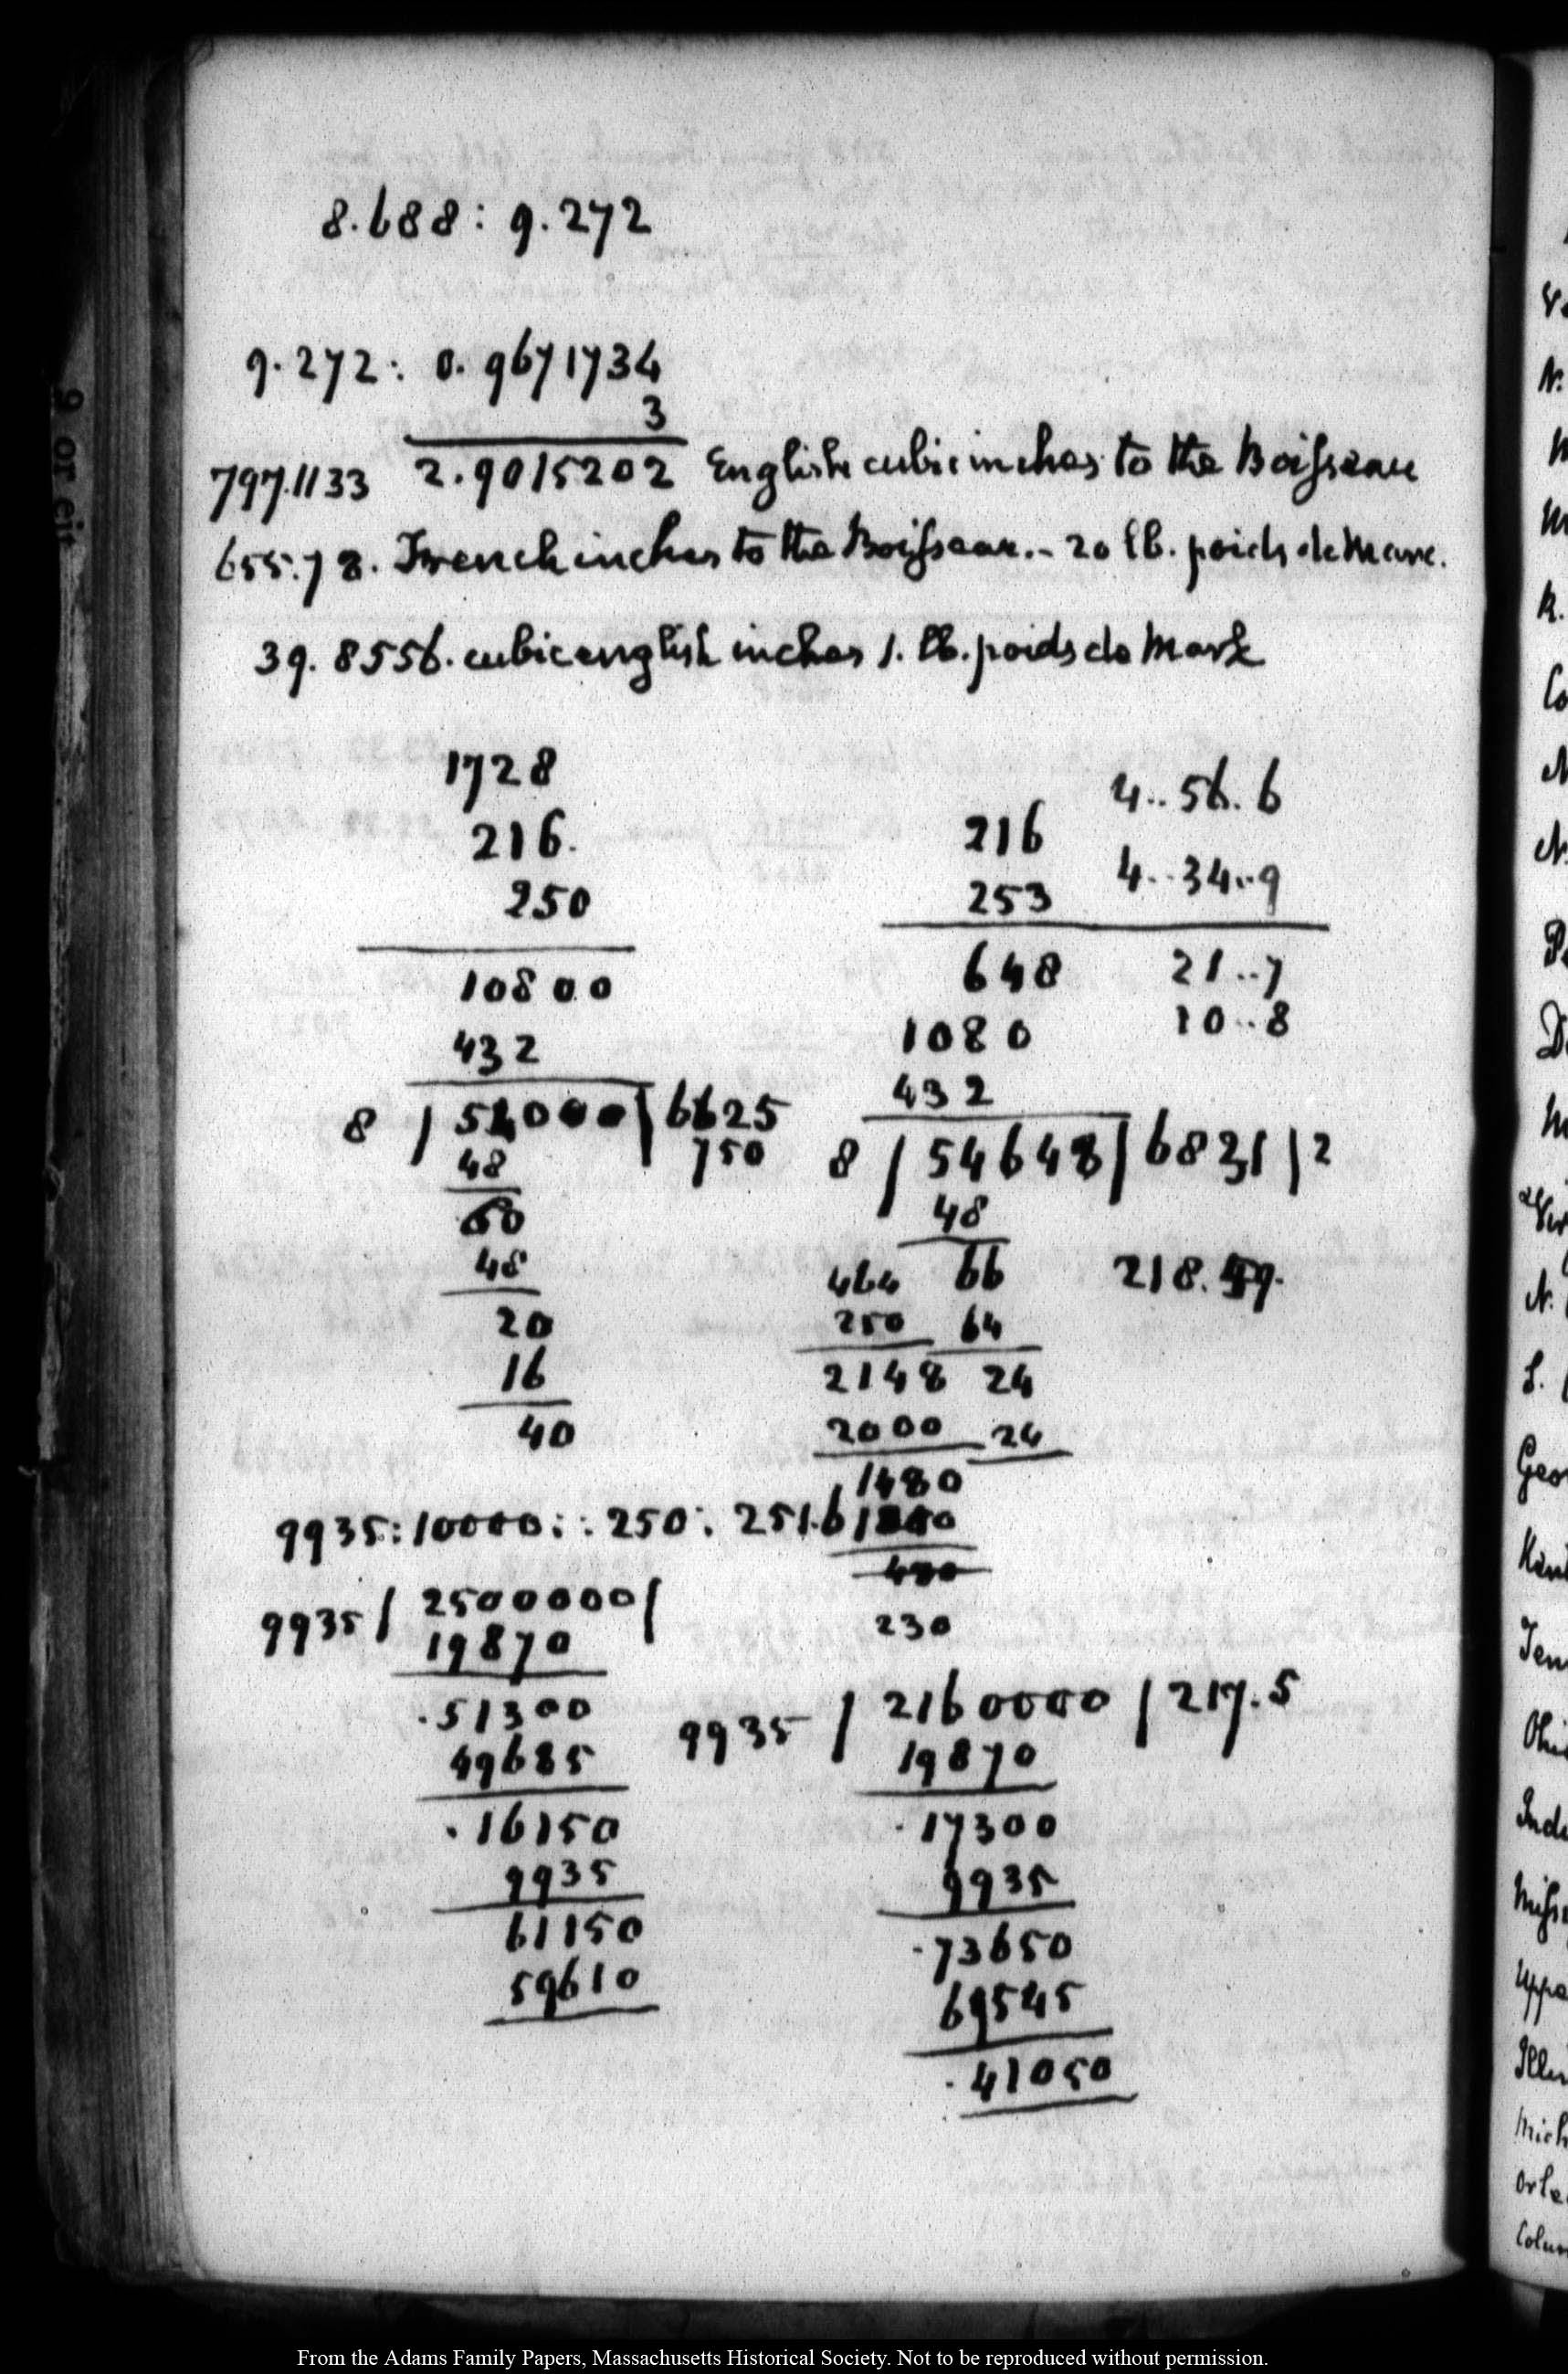 8.688: 9.272
9.272: 0.9671734
3
797.1133 2.9015202 English cubic inches to the Boisseau
655.78. French inches to the Boisseau.- 20 lb. poids de Marc.
39.8556. cubic english inches 1. lb. poids de Mark
1728
216.
250
10800
432
8 / 54000 | 6625
750
48
60
48
20
16
40
4..56.6
216
4..34..9
253
648 21..7
1080 10..8
432
8 / 54648 | 6831 | 2
48
464 66 218.
250 64
2148 24
2000 24
1480
9935:10000::250:251.6
230
9935 / 2500000 /
19870
.51300
49685
.16150
9935
61150
59610
9935 / 2160000 / 217.5
19870
.17300
9935
.73650
69545
.41050
9 or eit
Geo
Ohi
Indi
Illin
Mich
Orle
Colum
From the Adams Family Papers, Massachusetts Historical Society. Not to be reproduced without permission.